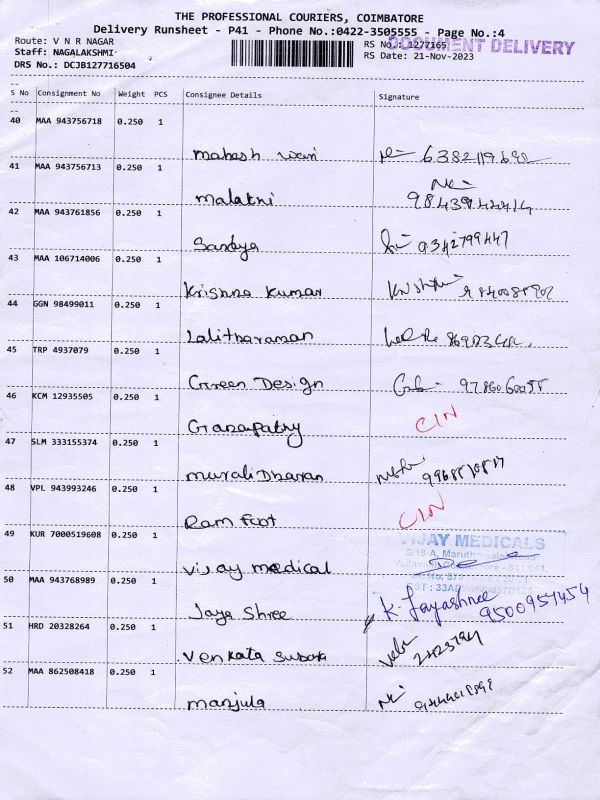 THE PROFESSIONAL COURIERS, COIMBATORE
Delivery Runsheet - P41 - Phone No.:0422-3505555 - Page No.:4
Route: V N R NAGAR
RS No.: 1277165
DOCUMENT DELIVERY
Staff: NAGALAKSHMI
RS Date: 21-Nov-2023
DRS No.: DCJB127716504
S No Consignment No Weight PCS Consignee Details Signature
40 MAA 943756718 0.250 1
Mahesh wari 6382119692
41 MAA 943756713 0.250 1
Malathi
42 MAA 943761856 0.250 1
Sandya 9342799447
43 MAA 106714006 0.250 1
Krishna Kumar
44 GGN 98499011 0.250 1
Lalitharaman
45 TRP 4937079 0.250 1
Green Design
46 KCM 12935505 0.250 1
Ganapathy CIN
47 SLM 333155374 0.250 1
Murali Dharan
48 VPL 943993246 0.250 1
Ram Foot CIN
49 KUR 7000519608 0.250 1
VIJAY MEDICALS
Vijay medical
50 MAA 943768989 0.250 1
Jaya Shree K. Jayashree 9500957454
51 HRD 20328264 0.250 1
Venkata
52 MAA 862508418 0.250 1
Manjula